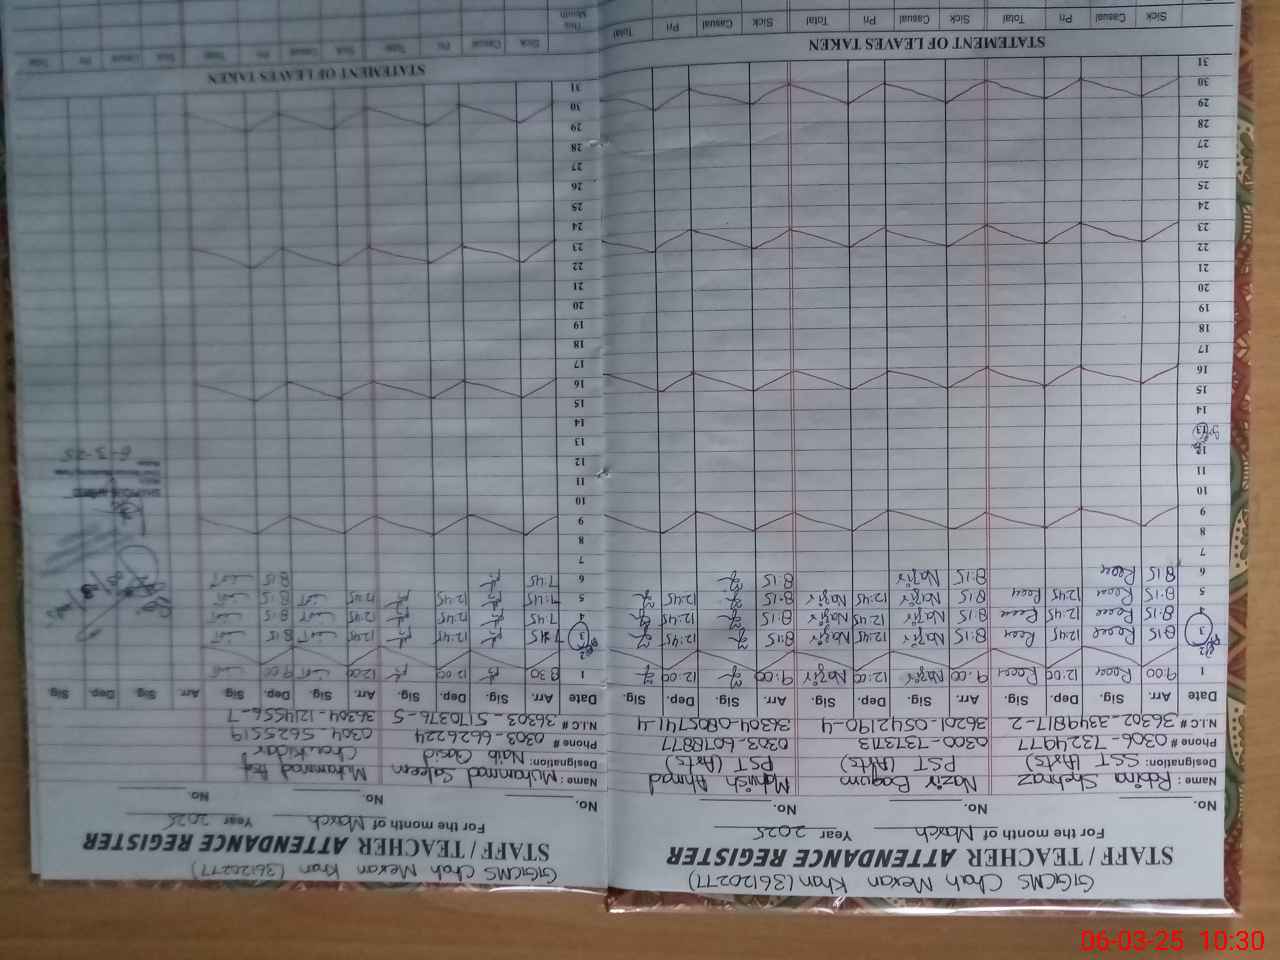 GGCMS Chah Mexan Khan (36120277)
STAFF / TEACHER ATTENDANCE REGISTER
For the month of March Year 2025
No. No. No.
Name : Rabina Shehnaz Nazir Begum Mahwish Ahmad
Designation: SST (Arts) PST (Arts) PST (Arts)
Phone # 0306-7324977 0300-7373713 0303-6078877
N.I.C # 36302-3349817-2 36201-0542190-4 36304-0805741-4
Date Arr. Sig. Dep. Sig. Arr. Sig. Dep. Sig. Arr. Sig. Dep. Sig.
1 9:00 Reen 12:00 Reen 9:00 Nazir 12:00 Nazir 9:00 12:00
2
3 8:15 Reen 12:45 Reen 8:15 Nazir 12:45 Nazir 8:15 12:45
4 8:15 Reen 12:45 Reen 8:15 Nazir 12:45 Nazir 8:15 12:45
5 8:15 Reen 12:45 Reen 8:15 Nazir 12:45 Nazir 8:15 12:45
6 8:15 Reen 8:15 Nazir 8:15
7
8
9
10
11
12
13
14
15
16
17
18
19
20
21
22
23
24
25
26
27
28
29
30
31
STATEMENT OF LEAVES TAKEN
Sick Casual Pri Total Sick Casual Pri Total Sick Casual Pri Total
GGCMS Chah Mexan Khan (36120277)
STAFF / TEACHER ATTENDANCE REGISTER
For the month of March Year 2025
No. No. No.
Name : Muhammad Saleem Muhammad Asif
Designation: Naib Qasid Chowkidar
Phone # 0303-6626224 0304-5625519
N.I.C # 36303-5170376-5 36304-1214556-7
Date Arr. Sig. Dep. Sig. Arr. Sig. Dep. Sig. Arr. Sig. Dep. Sig.
1 8:30 12:00 12:00 9:00
2
3 7:45 12:45 12:45 8:15
4 7:45 12:45 12:45 8:15
5 7:45 12:45 12:45 8:15
6 7:45 8:15
7
8
9
10
11
12
13
14
15
16
17
18
19
20
21
22
23
24
25
26
27
28
29
30
31
6-3-25
STATEMENT OF LEAVES TAKEN
Sick Casual Pri Total Sick Casual Pri Total Sick Casual Pri Total
This Month
06-03-25 10:30